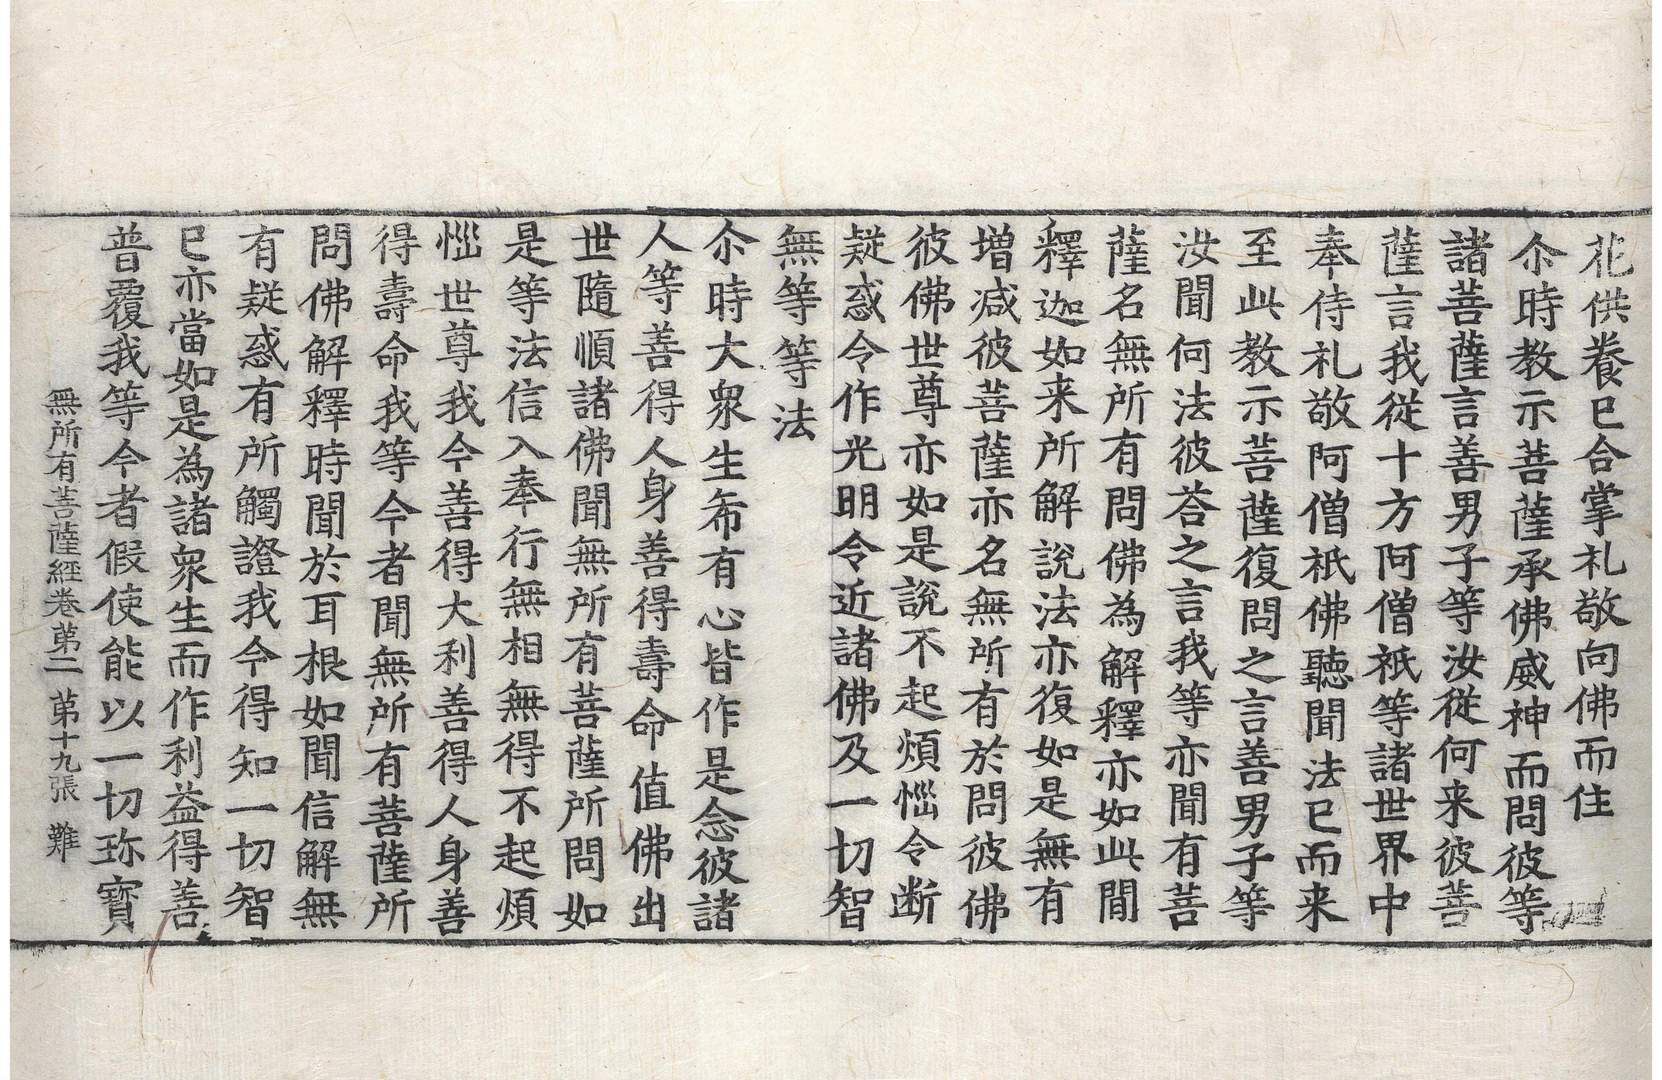 花供養已合掌礼敬向佛而住
尒時教示菩薩承佛威神而問彼等
諸菩薩言善男子等汝從何来彼菩
薩言我從十方阿僧祇等諸世界中
奉侍礼敬阿僧祇佛聽聞法已而来
至此教示菩薩復問之言善男子等
汝聞何法彼荅之言我等亦聞有菩
薩名無所有問佛為解釋亦如此間
釋迦如来所解說法亦復如是無有
增減彼菩薩亦名無所有於問彼佛
彼佛世尊亦如是說不起煩惱令断
疑惑令作光明令近諸佛及一切智
無等等法
尒時大衆生希有心皆作是念彼諸
人等善得人身善得壽命值佛出
世隨順諸佛聞無所有菩薩所問如
是等法信入奉行無相無得不起煩
惱世尊我今善得大利善得人身善
得壽命我等今者聞無所有菩薩所
問佛解釋時聞於耳根如聞信解無
有疑惑有所觸證我今得知一切智
已亦當如是為諸衆生而作利益得善
普覆我等今者假使能以一切珎寳
無所有菩薩經卷第二 第十九張 難